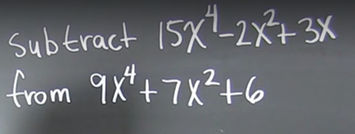 Subtract 15x⁴-2x²+3x
from 9x⁴+7x²+6